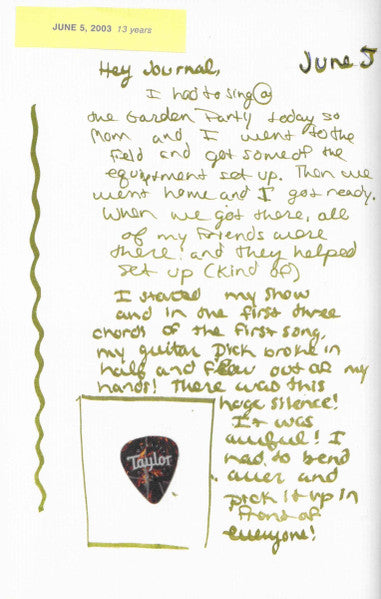 JUNE 5, 2003 13 years
June 5
Hey Journal,
I had to sing @
the Garden Party today so
Mom and I went to the
field and got some of the
equiptment set up. Then we
went home and I got ready.
When we got there, all
of my friends were
there and they helped
set up (kind of)
I started my show
and in the first three
chords of the first song,
my guitar pick broke in
half and flew out of my
hands! There was this
huge silence!
It was
awful! I
had to bend
over and
pick it up in
front of
everyone!
Taylor